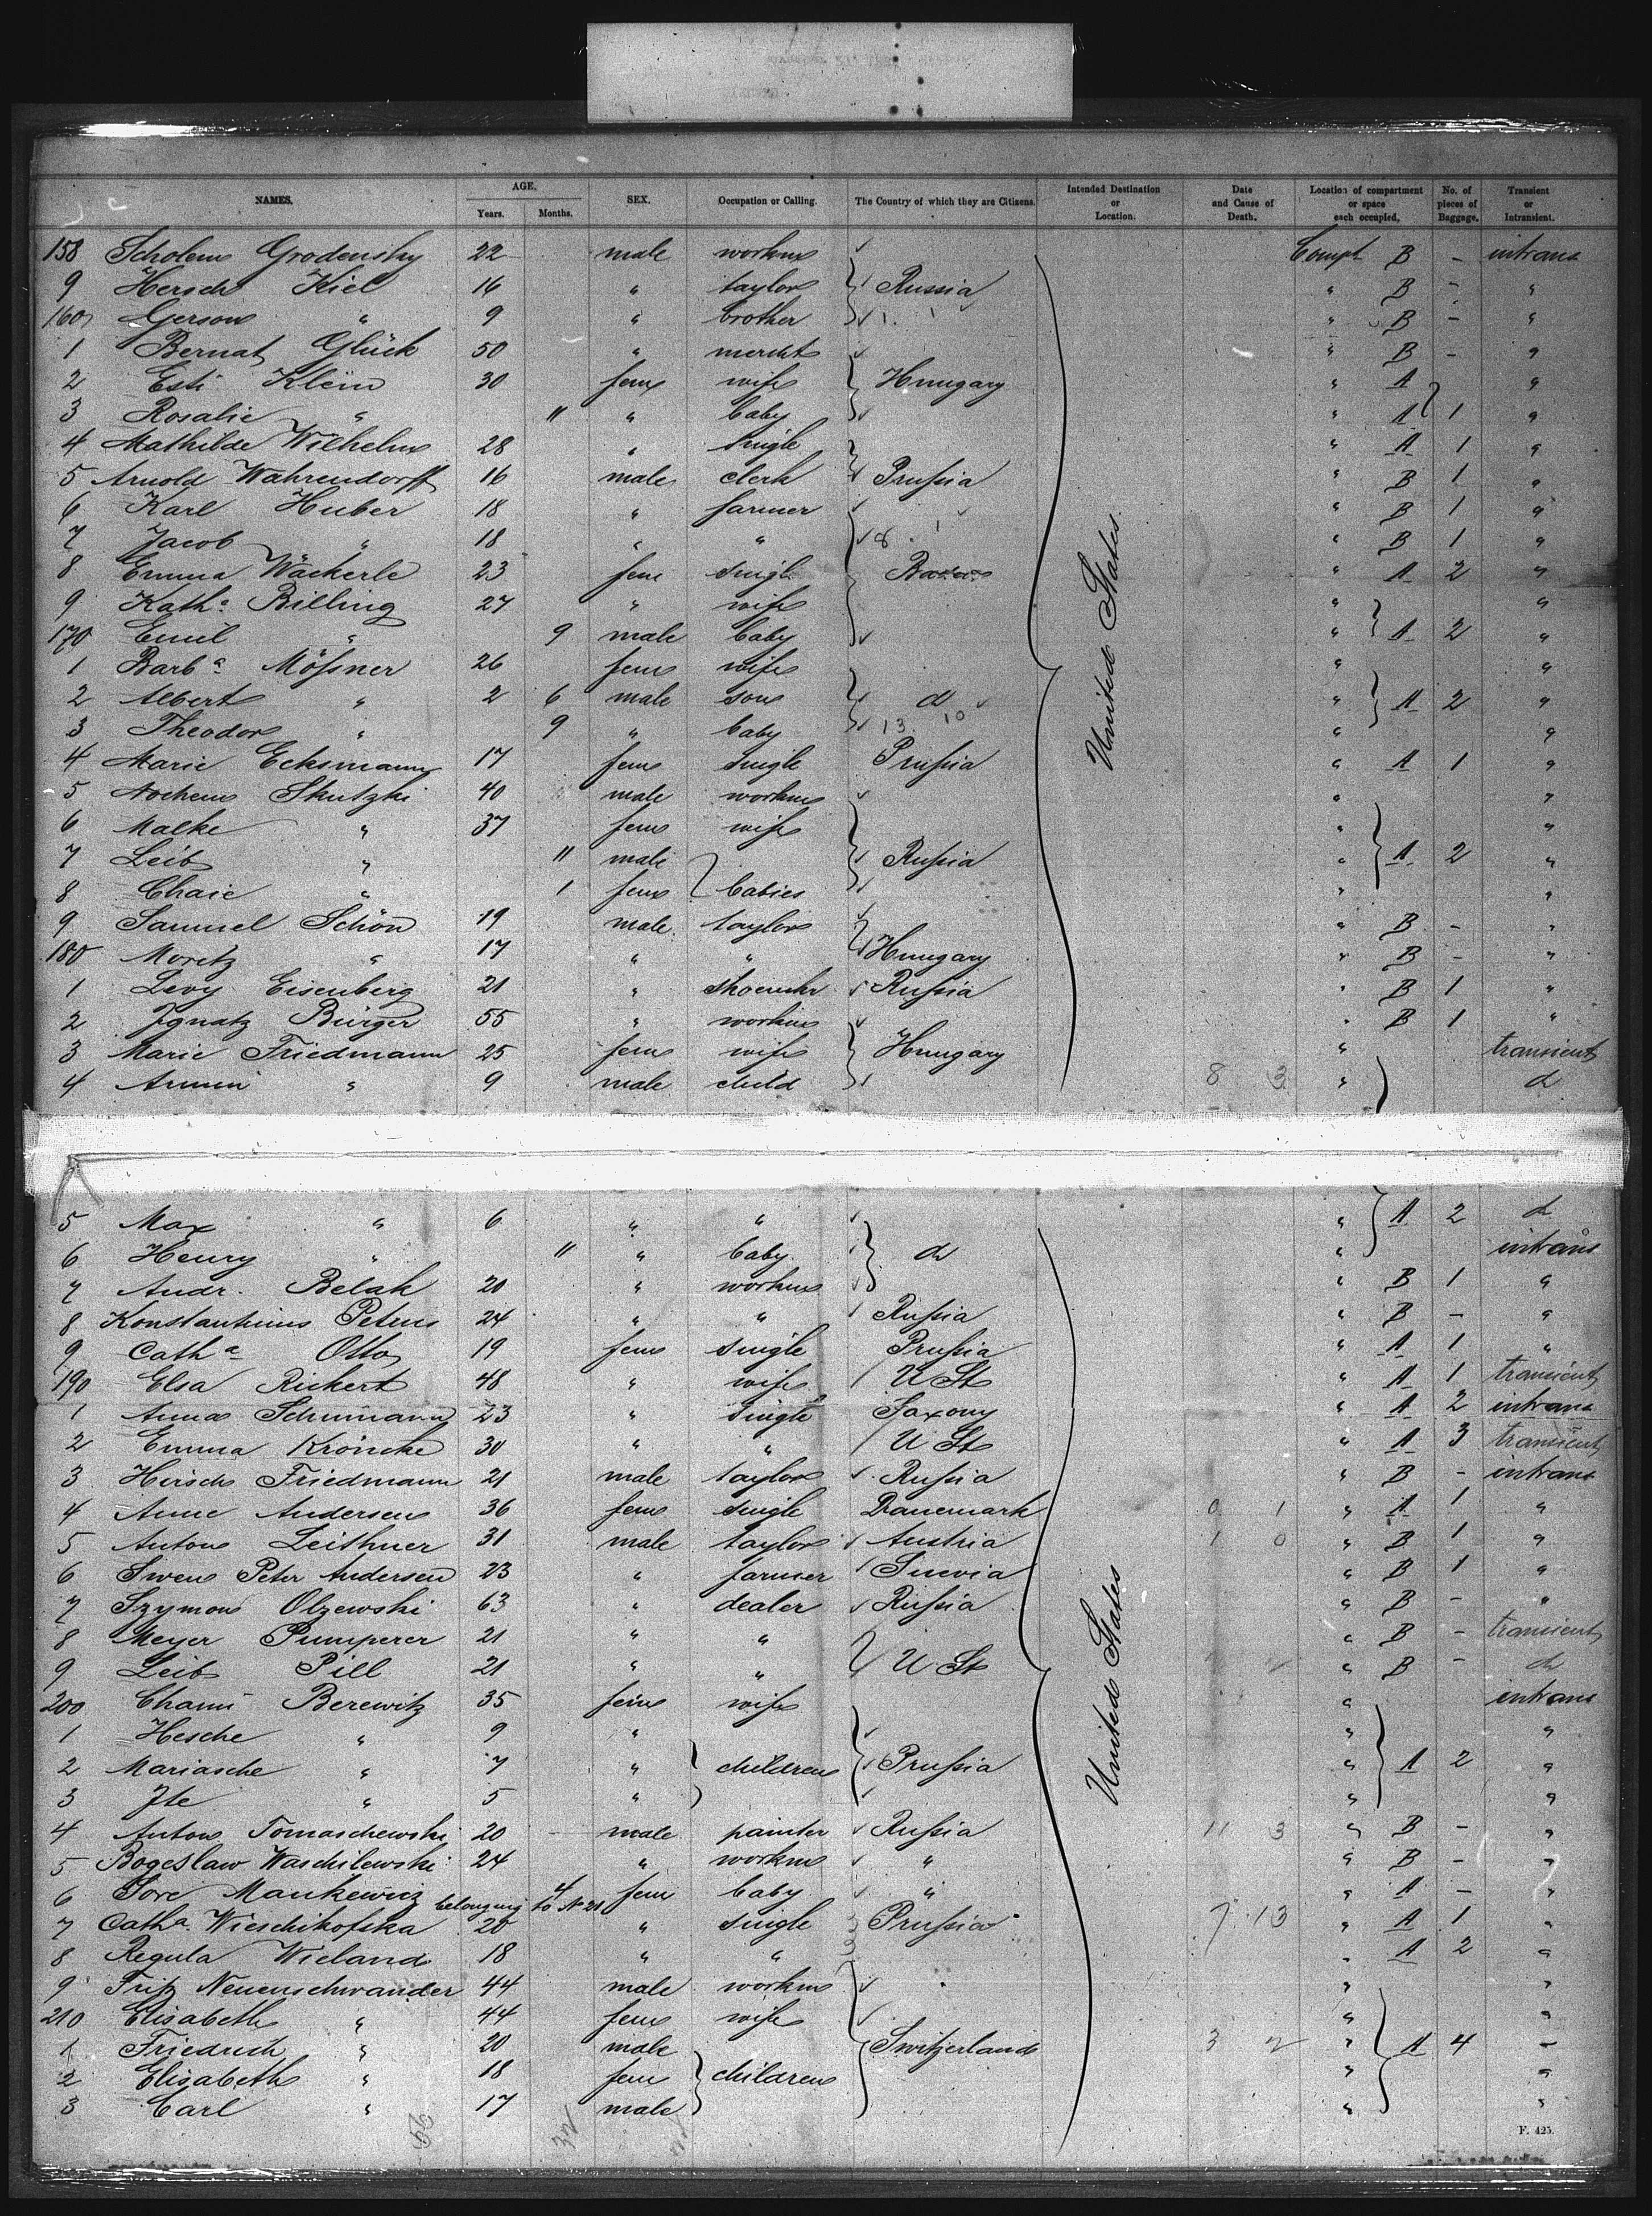 NAMES. AGE. Years. Months. SEX. Occupation or Calling. The Country of which they are Citizens. Intended Destination or Location. Date and Cause of Death. Location of compartment or space each occupied. No. of pieces of Baggage. Transient or Intransient.
158 Scholem Grodensky 22 male workm Compt B - intrans
9 Hersch Kiel 16 " taylor Russia " B - "
160 Gerson " 9 " brother " B - "
1 Bernat Glück 50 " mercht " B - "
2 Esti Klein 30 fem wife Hungary " A "
3 Rosalie " 11 " baby " A 1 "
4 Mathilde Wilhelm 28 " single " A 1 "
5 Arnold Wahrendorff 16 male clerk Prussia " B 1 "
6 Karl Huber 18 " farmer " B 1 "
7 Jacob " 18 " " " B 1 "
8 Emma Wäckerle 23 fem single Baden " A 2 "
9 Kath a Billing 27 " wife " "
170 Emil " 9 male baby " A 2 "
1 Barb a Mössner 26 fem wife " "
2 Albert " 2 6 male son d " A 2 "
3 Theodor " 9 " baby 13 10 " "
4 Marie Ecksmann 17 fem single Prussia " A 1 "
5 Nochem Skutzki 40 male workm " "
6 Malke " 37 fem wife " "
7 Leib " 11 male Russia " A 2 "
8 Chaie " 1 fem babies " "
9 Samuel Schön 19 male taylor " B - "
180 Moritz " 17 " " Hungary " B - "
1 Levy Eisenberg 21 " shoemkr Russia " B 1 "
2 Ignatz Bürger 55 " workm " B 1 "
3 Marie Friedmann 25 fem wife Hungary " transient
4 Armin " 9 male child 8 3 " d
United States.
5 Max " 6 " " " A 2 d
6 Henry " 11 " baby do " intrans
7 Andr. Belak 20 " workm " B 1 "
8 Konstantinus Petrus 24 " " Russia " B - "
9 Cath a Otto 19 fem single Prussia " A 1 "
190 Elsa Rickert 48 " wife U St " A 1 transient
1 Anna Schumann 23 " single Saxony " A 2 intrans
2 Emma Kröncke 30 " " U St " A 3 transient
3 Hirsch Friedmann 21 male taylor Russia " B - intrans
4 Anne Andersen 36 fem single Danemark 0 1 " A 1 "
5 Anton Leithner 31 male taylor Austria 1 0 " B 1 "
6 Swen Peter Andersen 23 " farmer Suevia " B 1 "
7 Szymon Olzewski 63 " dealer Russia " B - "
8 Meyer Pumperer 21 " " " B - transient
9 Leib Pill 21 " " U St " B - d
200 Chami Berewitz 35 fem wife " intrans
1 Hesche " 9 " " "
2 Mariasche " 7 " children Prussia " A 2 "
3 Ite " 5 " " "
4 Anton Tomaschewski 20 male painter Russia 11 3 " B - "
5 Bogeslaw Waschilewski 24 " workm " " B - "
6 Sore Mankewicz belonging to No 21 4 fem baby " " A - "
7 Cath a Wieschikofska 20 " single Prussia 7 13 " A 1 "
8 Regula Wieland 18 " " " A 2 "
9 Fritz Neuenschwander 44 male workm " "
210 Elisabeth " 44 fem wife " "
1 Friedrich " 20 male Switzerland 3 2 " A 4 "
2 Elisabeth " 18 fem children " "
3 Carl " 17 male " "
United States
F. 425.